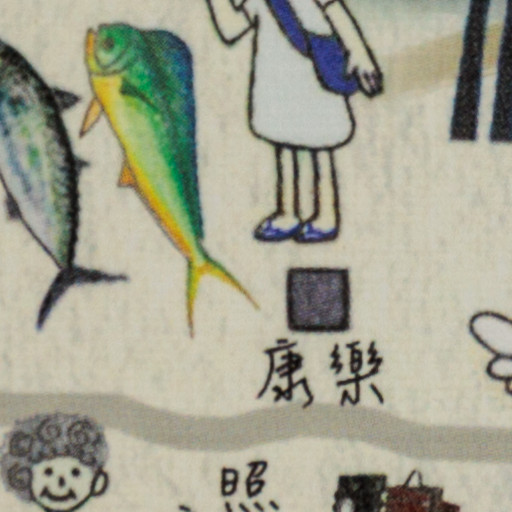 康樂
照